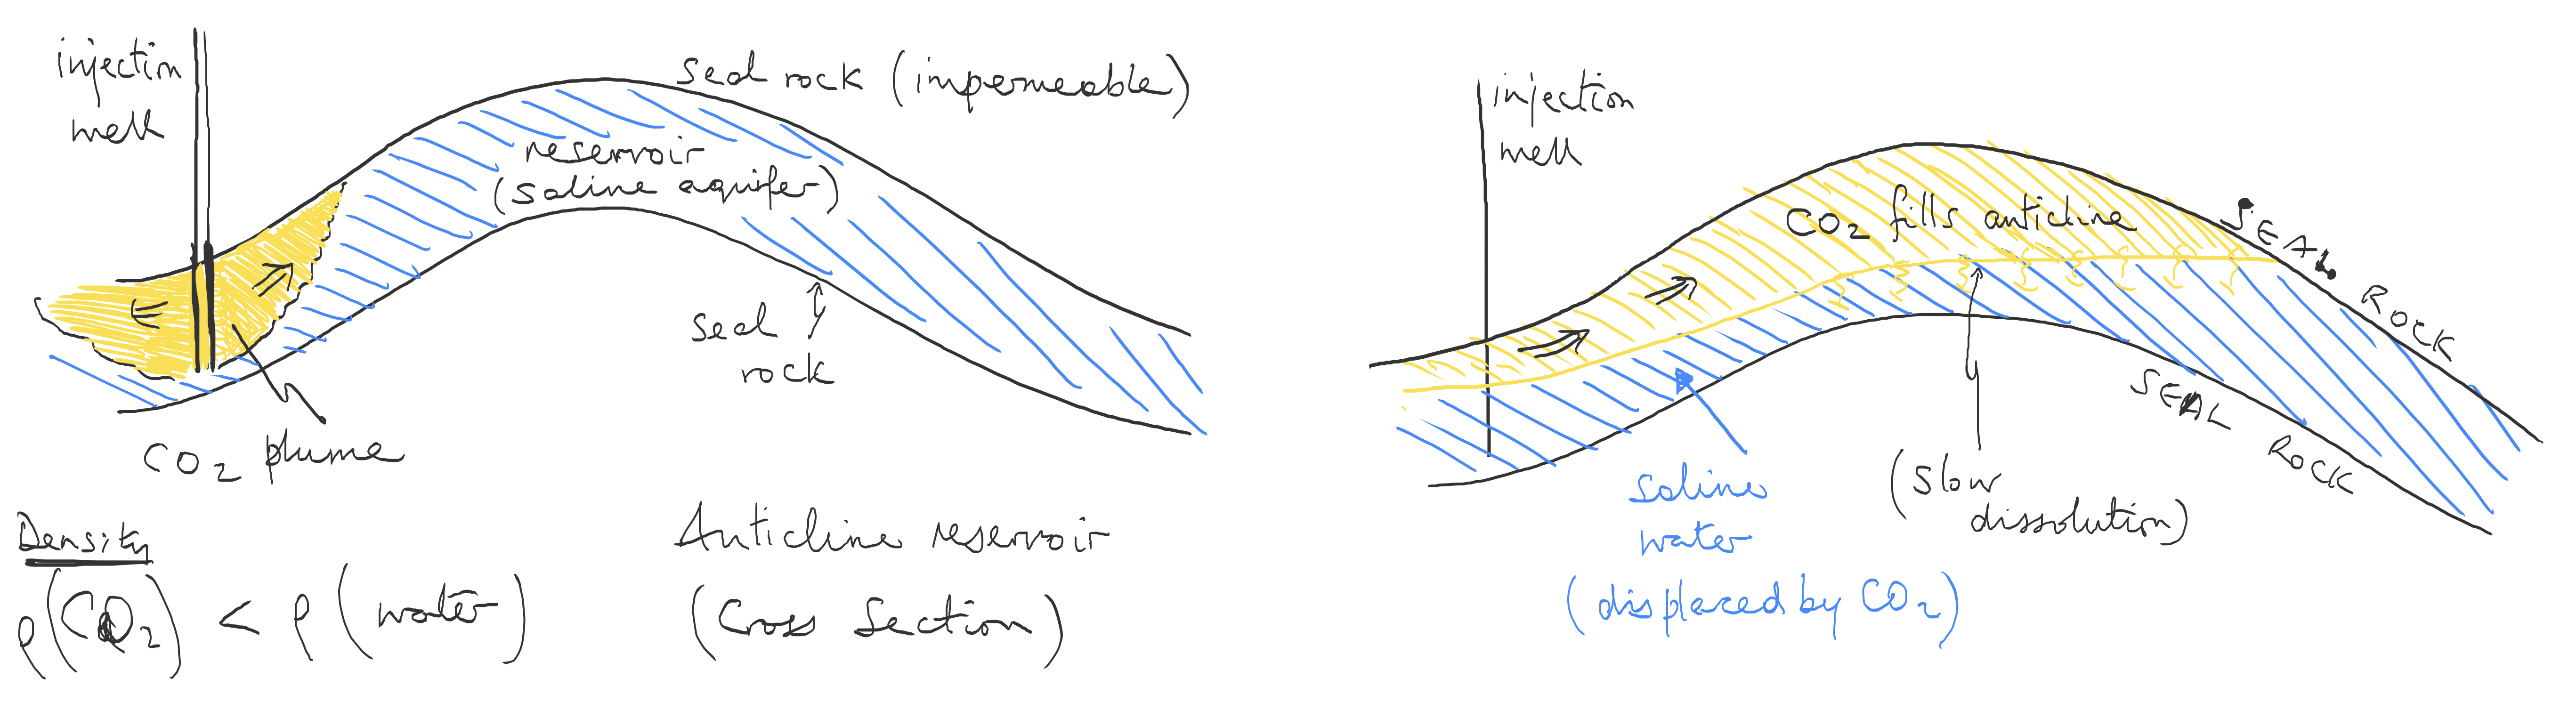 injection
well
seal rock (impermeable)
reservoir
(saline aquifer)
seal
rock
CO2 plume
Density
ρ(CO2) < ρ(water)
Anticline reservoir
(Cross Section)
injection
well
CO2 fills anticline
SEAL ROCK
SEAL ROCK
saline
water
(displaced by CO2)
(slow
dissolution)